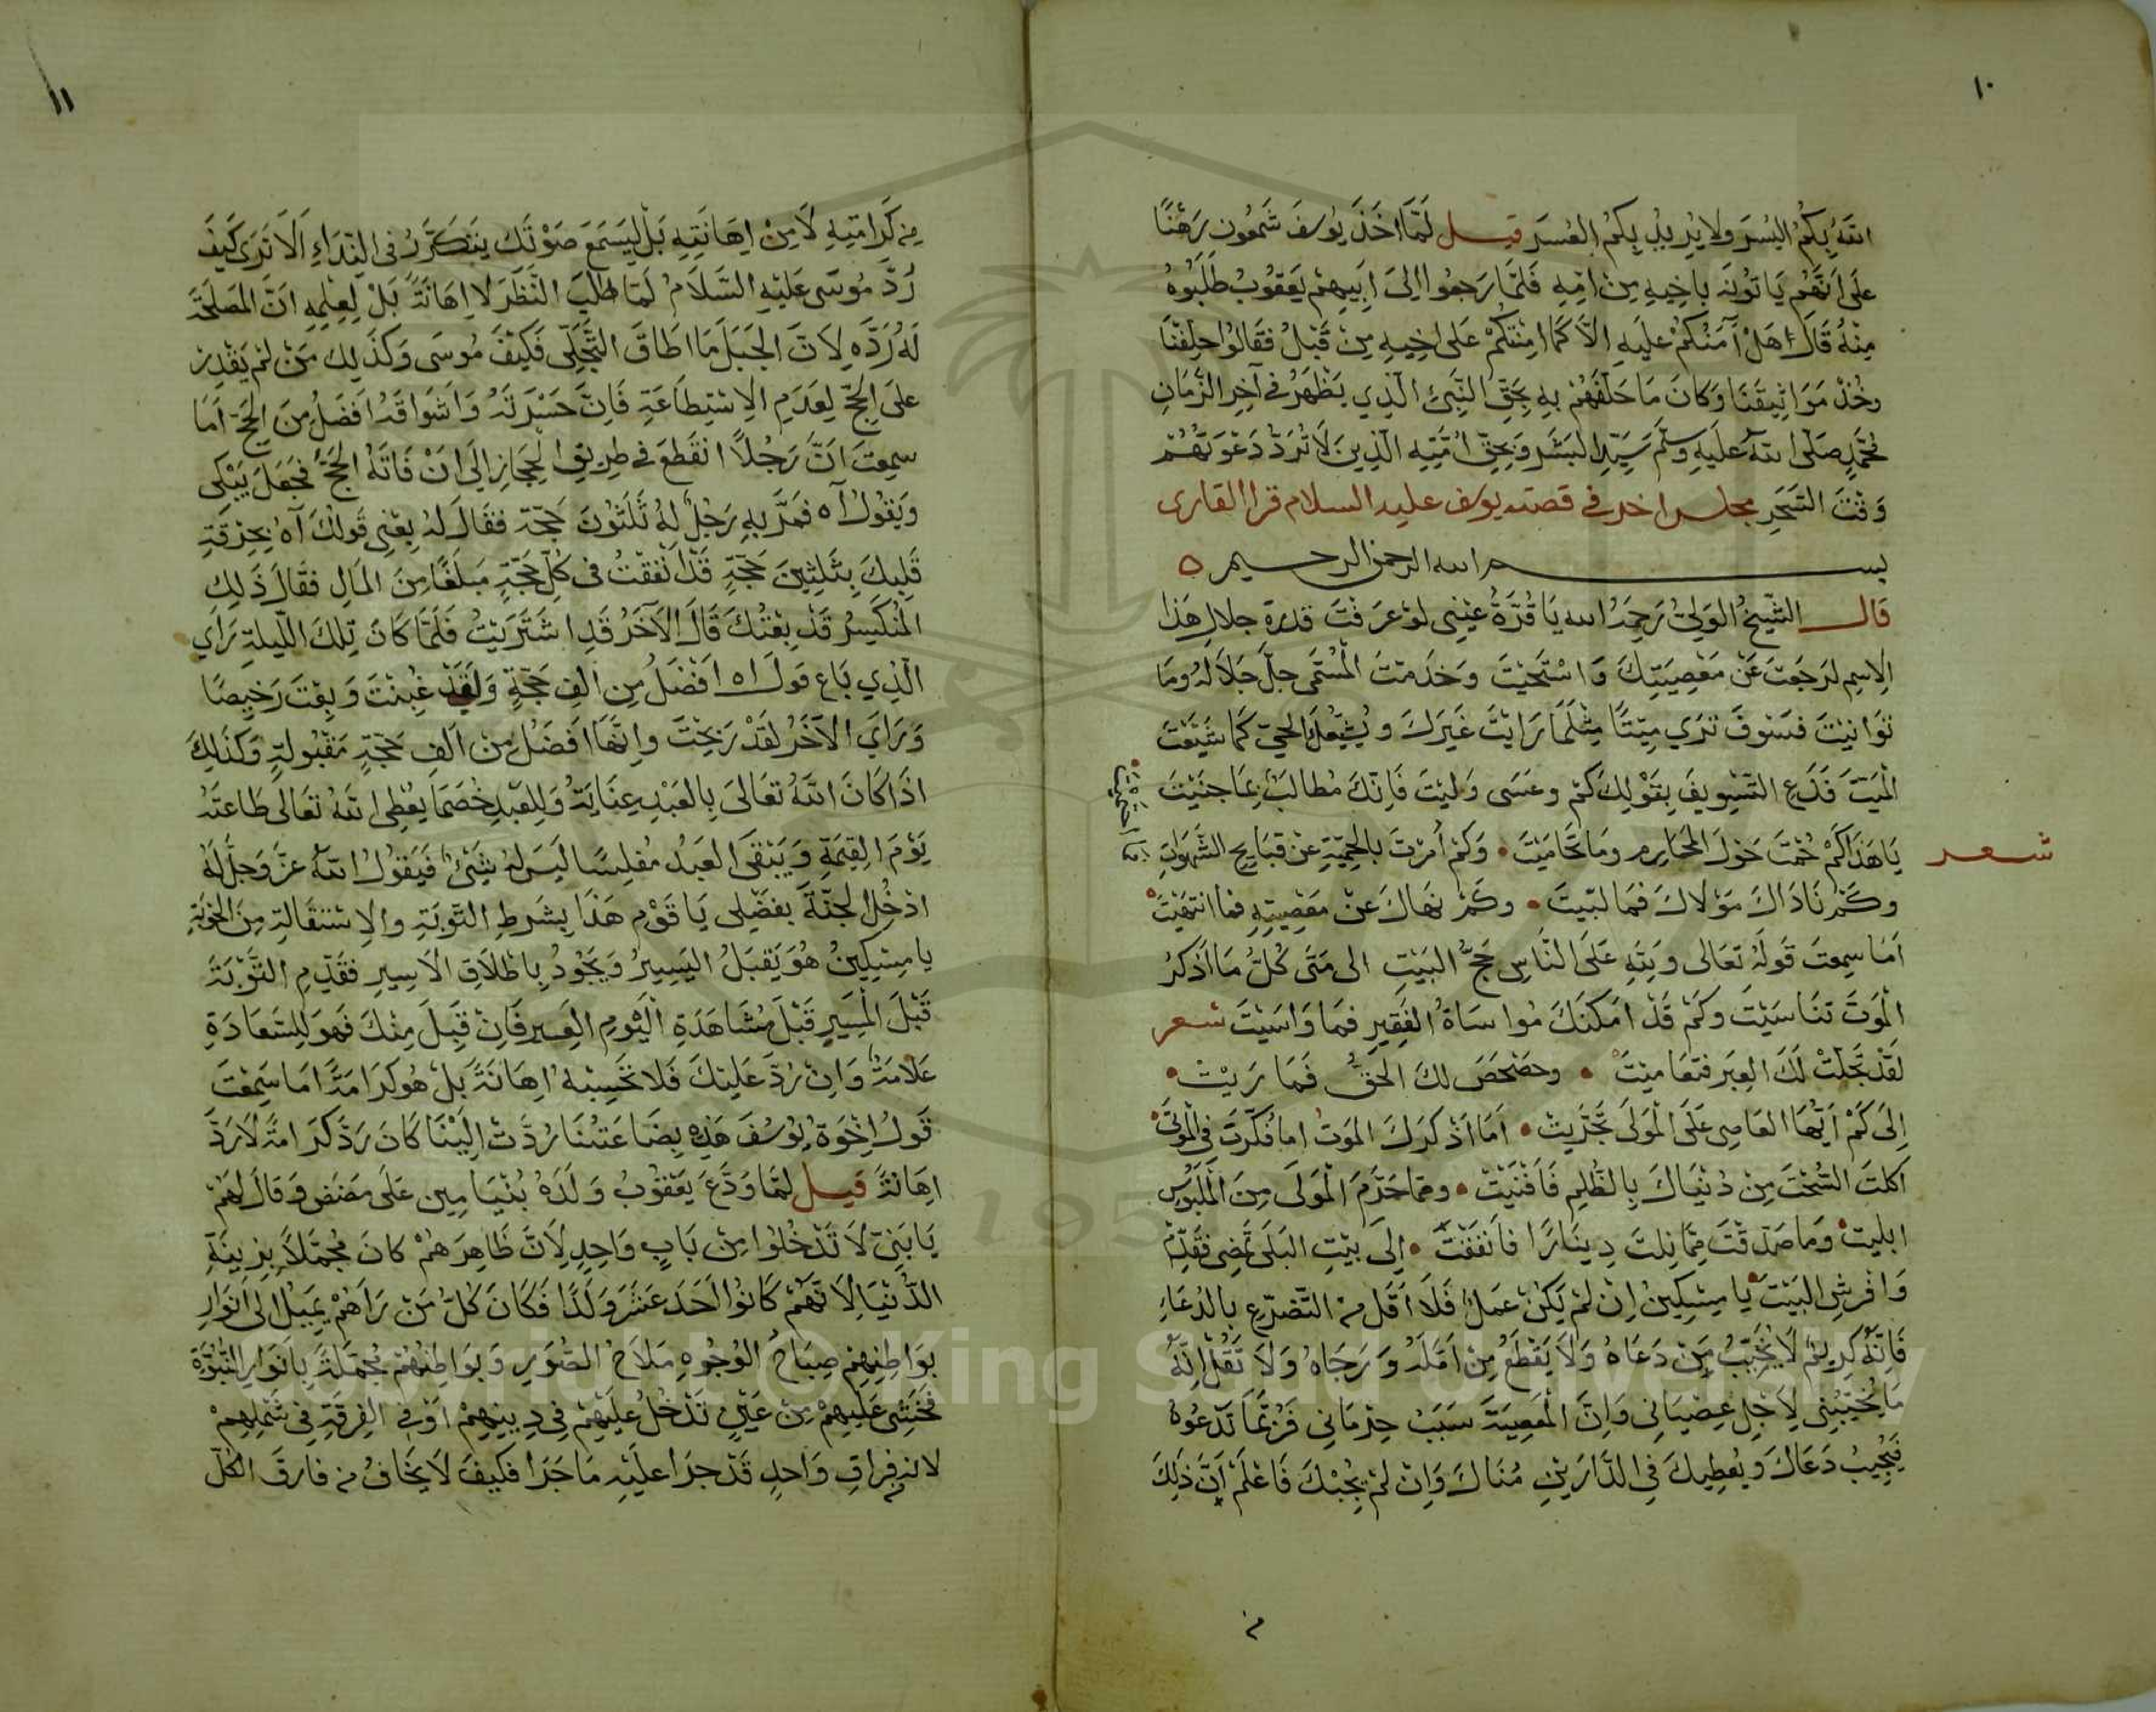 ١٠
الله بكم اليسر ولا يريد بكم العسر قيل لما اخذ يوسف شمعون رهنا
على انهم ياتونه باخيه من امه فلما رجعوا الى ابيهم يعقوب طلبوه
منه قال هل آمنكم عليه الا كما امنتكم على اخيه من قبل فقالوا حلفنا
وخذ مواثيقنا وكان ما حلفهم به بحق النبي الذي يظهر في آخر الزمان
محمد صلى الله عليه وسلم سيد البشر وبحق امته الذين لا ترد دعوتهم
وقت السحر مجلس اخر في قصة يوسف عليه السلام قرا القارى
بسم الله الرحمن الرحيم
قال الشيخ الولي رحمه الله يا قرة عيني لو عرفت قدرة جلال هذا
الاسم لرجعت عن معصيتك واستحيت وخدمت المسمى جل جلاله وما
توانيت فسوف ترى ميتا مثلما رايت غيرك ويشيعك الحي كما شيعت
الميت فدع التسويف بقولك كم وعسى وليت فانك مطالب بما جنيت
شعر
يا هذا كم حمت حول المحارم وما تحاميت وكم امرت بالحمية عن قبايح الشهوات
فما احتميت
وكم ناداك مولاك فما لبيت وكم نهاك عن معصيته فما انتهيت
اما سمعت قوله تعالى ولله على الناس حج البيت الى متى كل ما اذكر
الموت تناسيت وكم قد امكنك مواساة الفقير فما واسيت شعر
لقد تجلت لك العبر فتعاميت وحصحص لك الحق فما ريت
الى كم ايها العاصي على المولى تجريت اما اذكرك الموت اما فكرت في الموتى
اكلت السحت من دنياك بالظلم فافنيت ومما حرم المولى من الملبوس
ابليت وما صدقت مما نلت دينارا فانفقت الى بيت البلى تمضي فقدم
وافرش البيت يا مسكين ان لم يكن عمل فلا اقل من التضرع بالدعاء
فانه كريم لا يخيب من دعاه ولا يقطع من امله ورجاه ولا تقل انه
ما يخيبني لاجل عصياني وان المعصية سبب حرماني فربما تدعوه
فيجيب دعاك ويعطيك في الدارين مناك وان لم يجبك فاعلم ان ذلك
من
١١
من كرامته لا من اهانته بل ليسمع صوتك يتكرر في النداء الا ترى كيف
رد موسى عليه السلام لما طلب النظر لا اهانة بل لعلمه ان المصلحة
له رده لان الجبل ما اطاق التجلي فكيف موسى وكذلك من لم يقدر
على الحج لعدم الاستطاعة فان حسرته واشواقه افضل من الحج اما
سمعت ان رجلا انقطع في طريق الحجاز الى ان فاته الحج فجعل يبكي
ويقول آه فمر به رجل له ثلثون حجة فقال له بعني قولك آه بحرقة
قلبك بثلثين حجة قد انفقت في كل حجة مبلغا من المال فقال ذلك
المنكسر قد بعتك قال الآخر قد اشتريت فلما كان تلك الليلة راى
الذي باع قول اه افضل من الف حجة ولقد غبنت وبعت رخيصا
وراى الآخر لقد ربحت وانها افضل من الف حجة مقبولة وكذلك
اذا كان الله تعالى بالعبد عناية وللعبد خصما يعطى الله تعالى طاعته
يوم القيمة ويبقى العبد مفلسا ليس له شيء فيقول الله عز وجل له
ادخل الجنة بفضلي يا قوم هذا بشرط التوبة والاستقالة من الحوبة
يا مسكين هو يقبل اليسير ويجود باطلاق الاسير فقدم التوبة
قبل المسير قبل مشاهدة اليوم العسير فان قبل منك فهو للسعادة
علامة وان رد عليك فلا تحسبه اهانة بل هو كرامة اما سمعت
قول اخوة يوسف هذه بضاعتنا ردت الينا كان رد كرامة لا رد
اهانة قيل لما ودع يعقوب ولده بنيامين على مضض وقال لهم
يا بني لا تدخلوا من باب واحد لان ظاهرهم كان مجملا بزينة
الدنيا لانهم كانوا احد عشر ولدا فكان كل من راهم يميل الى انوار
بواطنهم صباح الوجوه ملاح الصور وبواطنهم مجملة بانوار النبوة
فخشي عليهم من عين تدخل عليهم في دينهم او في الفرقة في شملهم
لانه من فراق واحد قد جرا عليه ما جرا فكيف لا يخاف من فارق الكل
Copyright © King Saud University
195